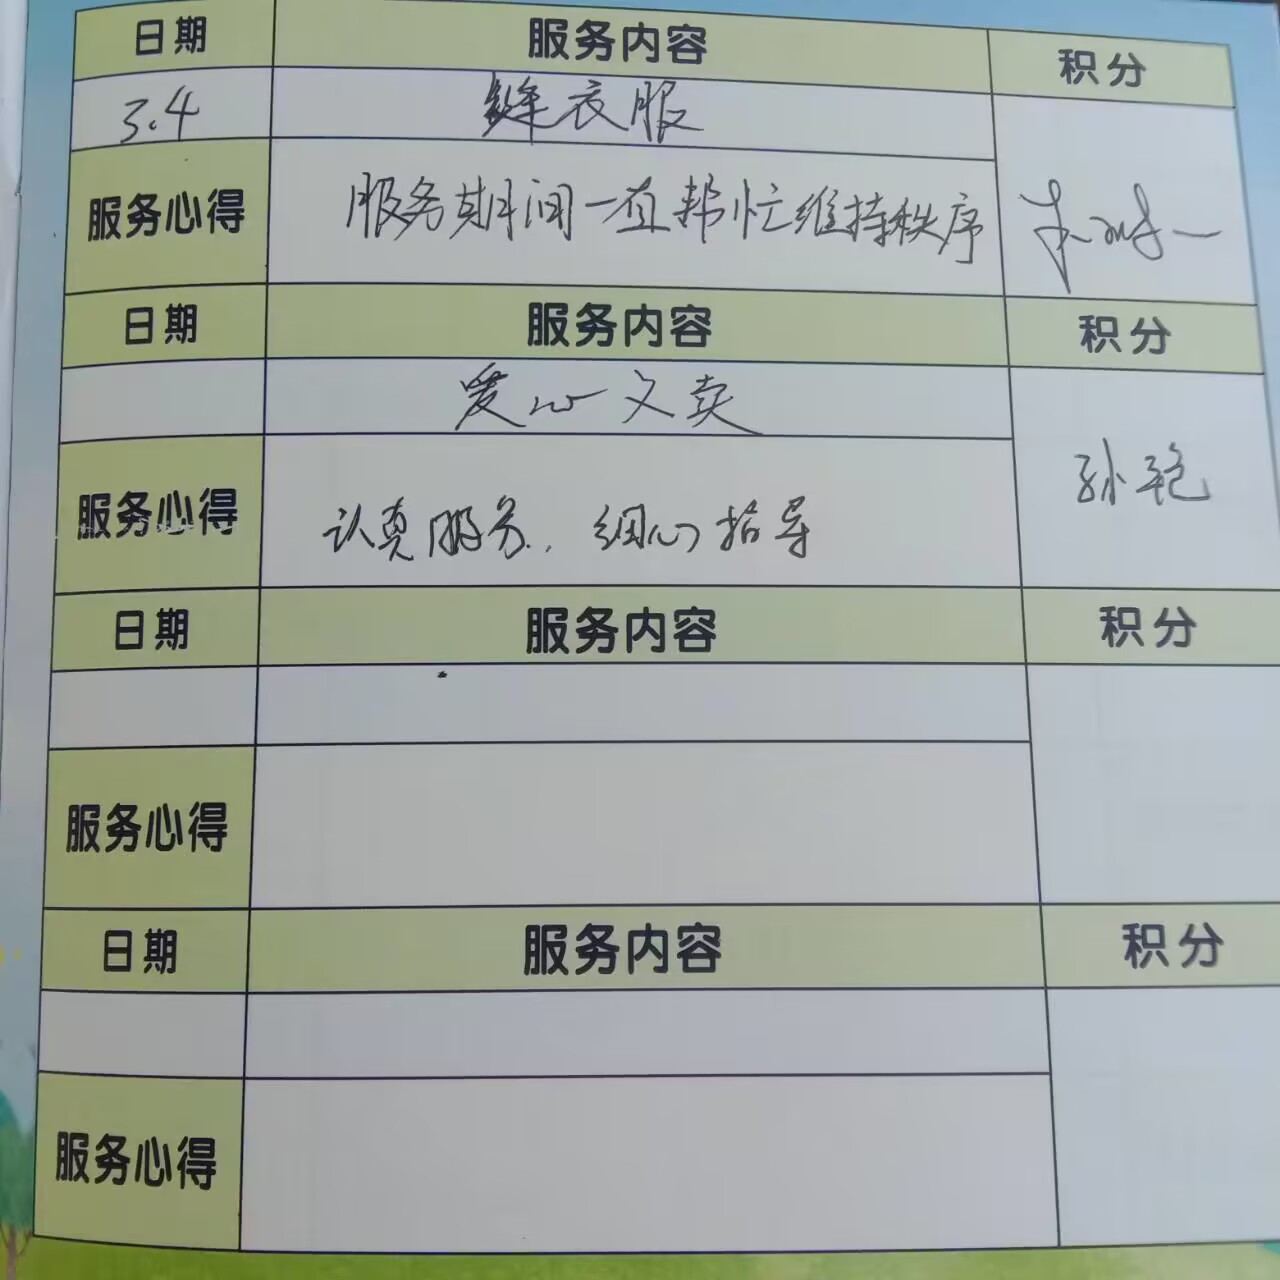 日期 服务内容 积分
3.4 缝衣服
服务心得 服务期间一直帮忙维持秩序
日期 服务内容 积分
爱心义卖
服务心得 认真服务，细心指导 孙艳
日期 服务内容 积分
服务心得
日期 服务内容 积分
服务心得